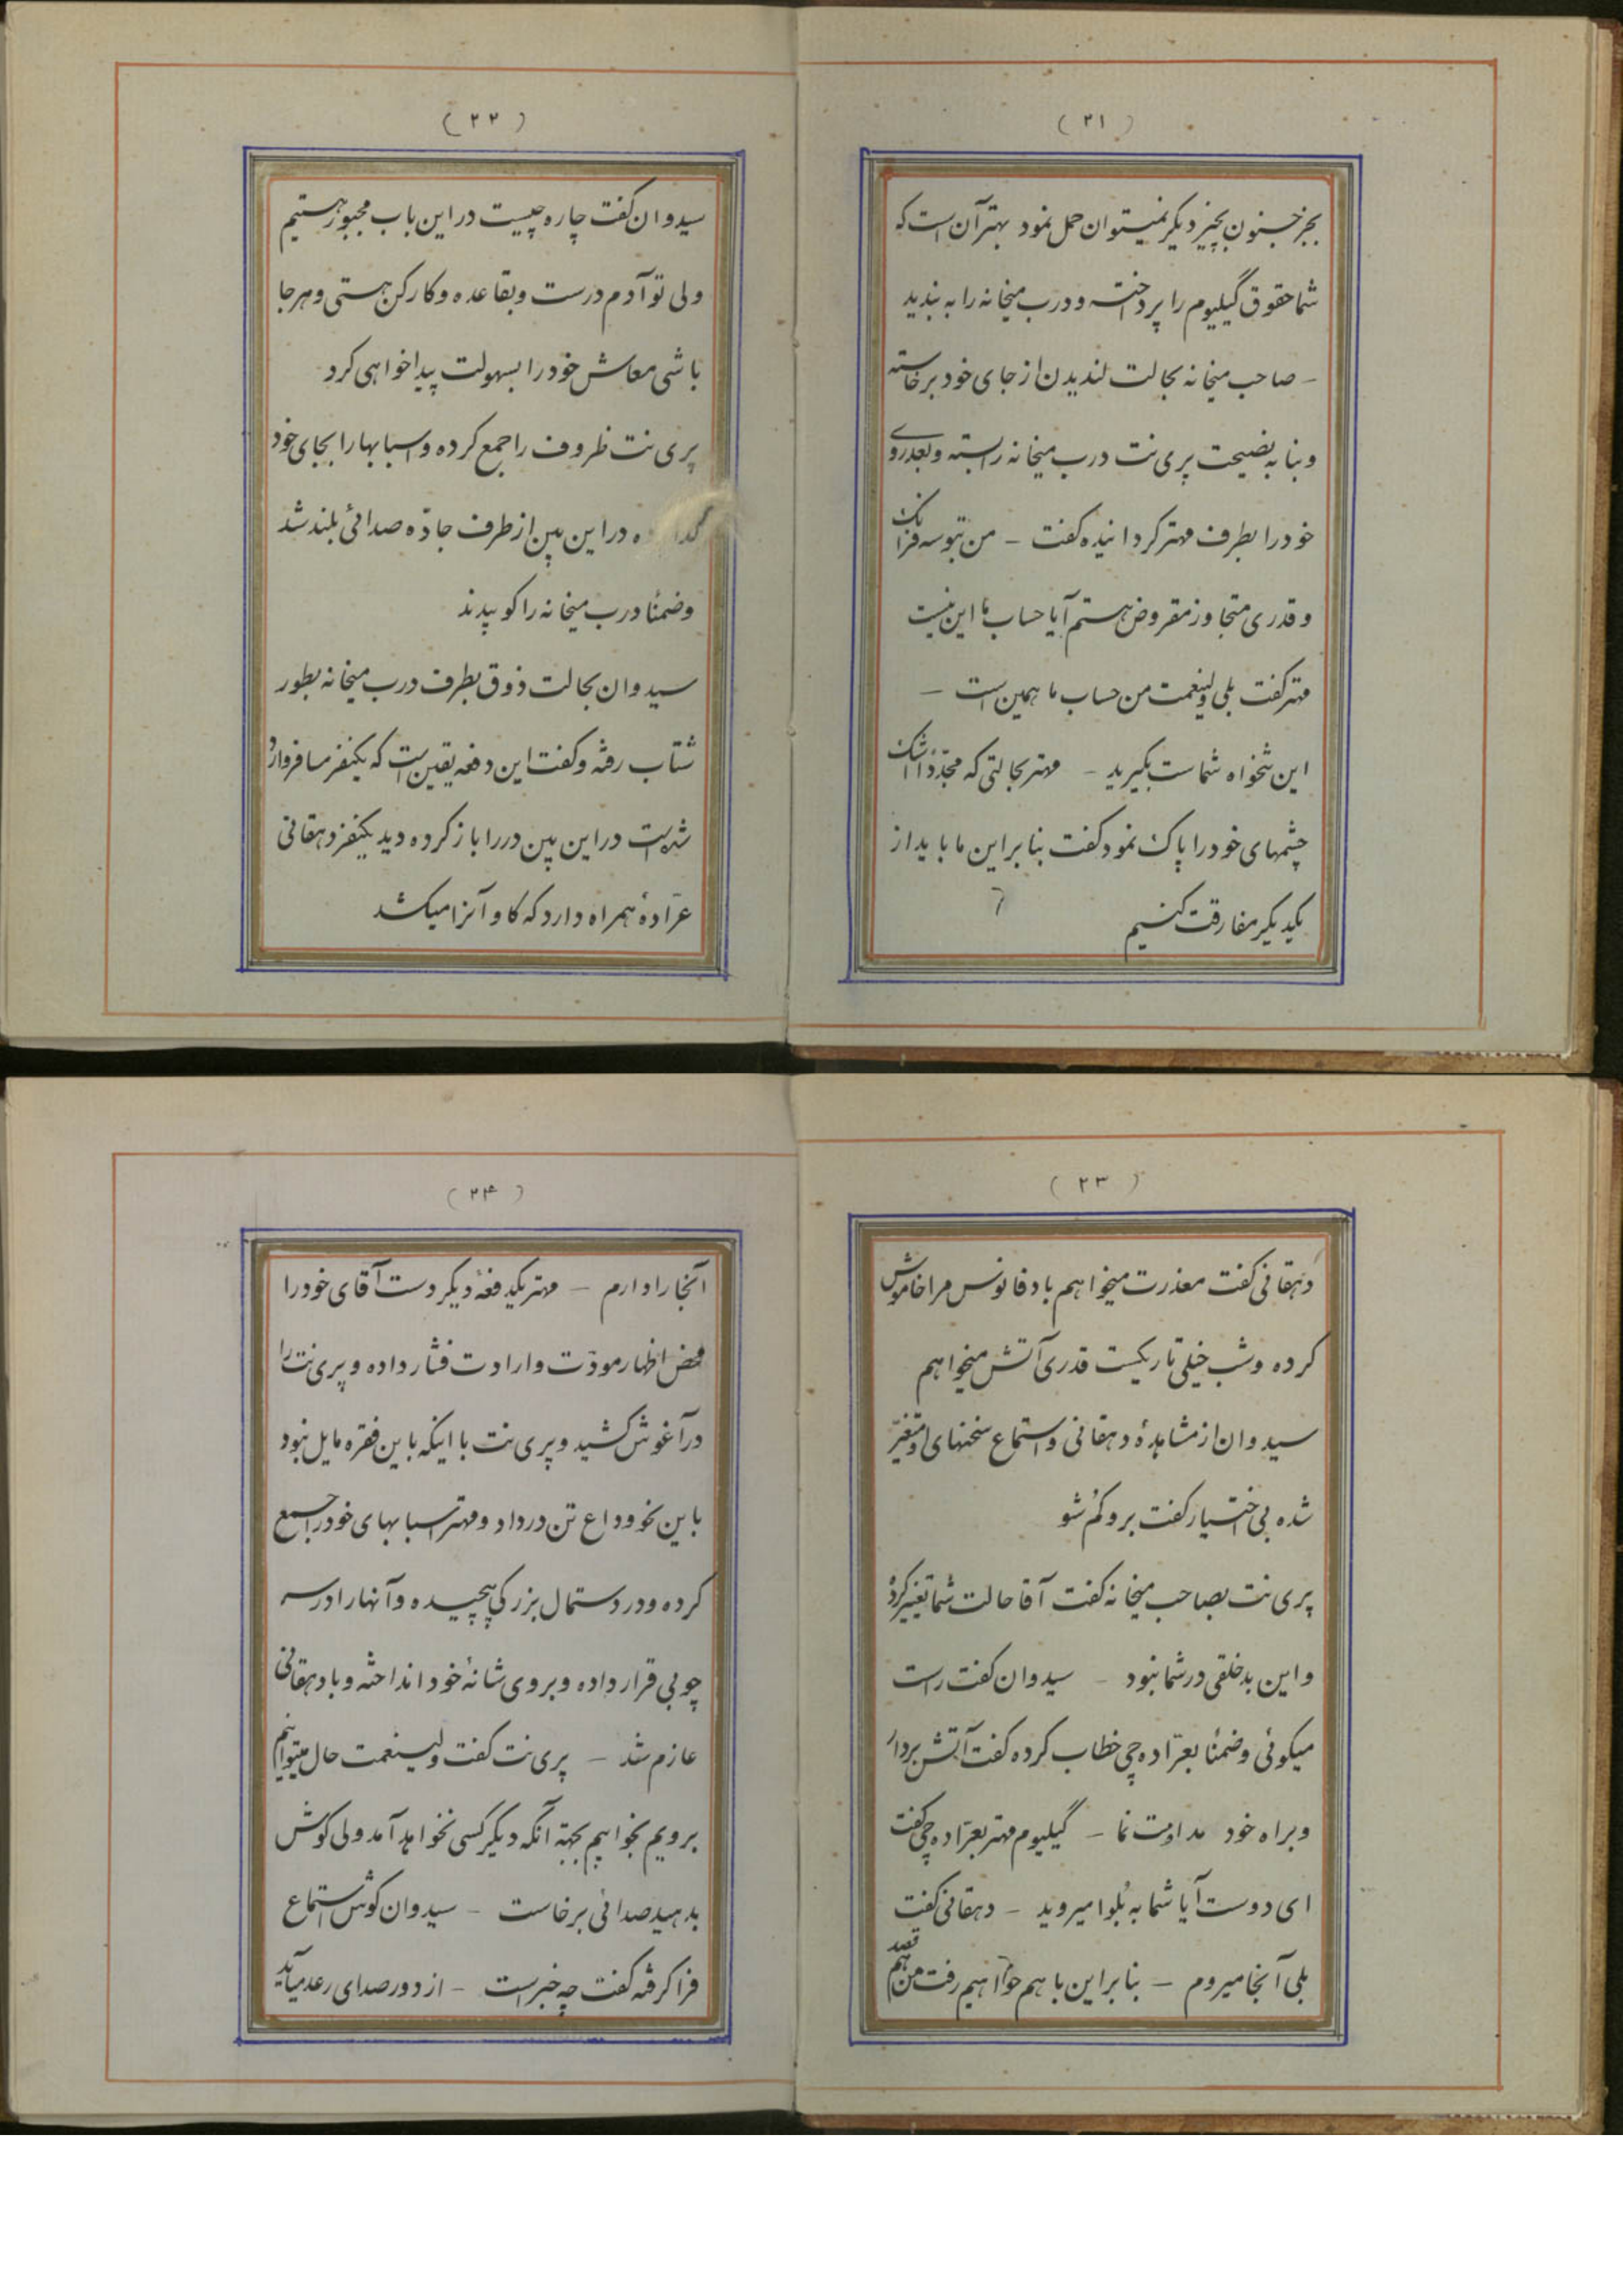 (۲۱)
بجز جنون بچیز دیگر نمیتوان حمل نمود بهتر آن است که
شما حقوق گیلیوم را پرداخته و درب میخانه را به بندید
- صاحب میخانه بحالت لندیدن از جای خود برخاسته
و بنا به نصیحت پری نت درب میخانه را بسته و بعد روی
خود را بطرف مهتر کردانیده کفت - من بتو سه فرانک
و قدری متجاوز مقروض هستم آیا حساب ما این نیست
مهتر کفت بلی ولینعمت من حساب ما همین است -
این تنخواه شماست بکیرید - مهتر بحالتی که مجدداً اشک
چشمهای خود را پاک نمود کفت بنابراین ما باید از
یکدیکر مفارقت کنیم
(۲۲)
سیدوان کفت چاره چیست در این باب مجبور هستیم
ولی تو آدم درست و بقاعده و کارکن هستی و هر جا
باشی معاش خود را بسهولت پیدا خواهی کرد
پری نت ظروف را جمع کرده و اسبابها را بجای خود
در این بین از طرف جاده صدائی بلند شد
و ضمناً درب میخانه را کوبیدند
سیدوان بحالت ذوق بطرف درب میخانه بطور
شتاب رفته و کفت این دفعه یقین است که یکنفر مسافر وارد
شده است در این بین در را باز کرده دید یکنفر دهقانی
عرّادهٔ همراه دارد که کاو آنرا میکشد
(۲۳)
دهقانی کفت معذرت میخواهم باد فانوس مرا خاموش
کرده و شب خیلی تاریکست قدری آتش میخواهم
سیدوان از مشاهدهٔ دهقانی و استماع سخنهای او متغیّر
شده بی اختیار کفت برو کم شو
پری نت بصاحب میخانه کفت آقا حالت شما تغییر کرده
و این بدخلقی در شما نبود - سیدوان کفت راست
میکوئی و ضمناً بعرّاده چی خطاب کرده کفت آتش بردار
و براه خود مداومت نما - گیلیوم مهتر بعرّاده چی کفت
ای دوست آیا شما به بلوا میروید - دهقانی کفت
بلی آنجا میروم - بنابراین با هم خواهیم رفت من هم قصد
(۲۴)
آنجا را دارم - مهتر یکدفعهٔ دیکر دست آقای خود را
محض اظهار مودّت و ارادت فشار داده و پری نت را
در آغوش کشید و پری نت با اینکه باین فقره مایل نبود
باین نحو وداع تن در داد و مهتر اسبابهای خود را جمع
کرده و در دستمال بزرکی پیچیده و آنها را در سر
چوبی قرار داده و بروی شانهٔ خود انداخته و با دهقانی
عازم شد - پری نت کفت ولینعمت حال میتوانیم
برویم بخوابیم بجهة آنکه دیکر کسی نخواهد آمد ولی کوش
بدهید صدائی برخاست - سیدوان کوش استماع
فرا کرفته کفت چه خبر است - از دور صدای رعد میآید